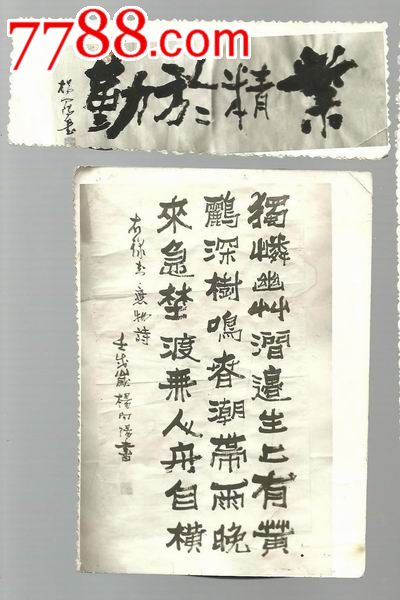 7788.com
業精扵勤
獨憐幽艸澗邊生上有黃
鸝深樹鳴春潮帶雨晚
來急埜渡無人舟自橫
右錄韋應物詩
壬戌歲楊向陽書